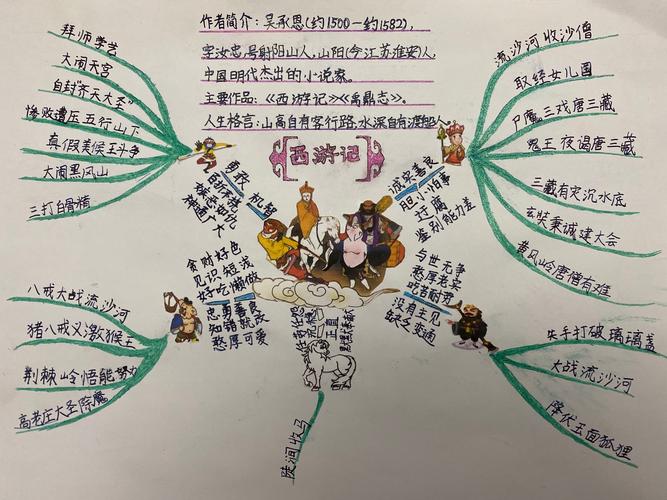 作者简介：吴承恩(约1500一约1582),
字汝忠,号射阳山人,山阳(今江苏淮安)人,
中国明代杰出的小说家。
主要作品：《西游记》《禹鼎志》。
人生格言：山高自有客行路,水深自有渡船人。
西游记
拜师学艺
大闹天宫
自封"齐天大圣"
惨败遭压五行山下
真假美猴王斗争
大闹黑风山
三打白骨精
勇敢 机智
流沙河收沙僧
取经女儿国
尸魔三戏唐三藏
鬼王夜谒唐三藏
三藏有灾沉水底
玄奘秉诚建大会
黄风岭唐僧有难
诚实善良
胆小怕事
迂腐
鉴别能力差
八戒大战流沙河
猪八戒义激猴王
荆棘岭悟能努力
高老庄大圣除魔
贪财好色
见识短浅
好吃懒做
忠勇善良
知错就改
憨厚可爱
与世无争
憨厚老实
吃苦耐劳
没有主见
缺乏变通
失手打破琉璃盏
大战流沙河
降伏玉面狐狸
任劳任怨
正直
陡涧收马